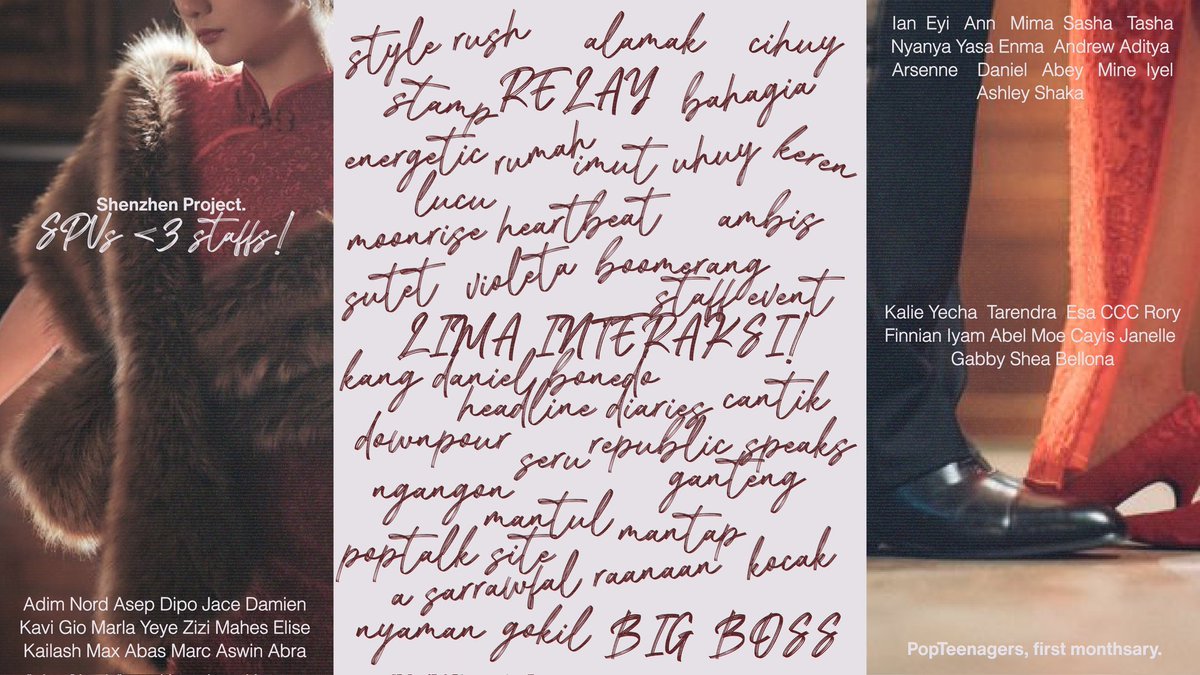 Shenzhen Project.
SPVs <3 staffs!
Adim Nord Asep Dipo Jace Damien
Kavi Gio Marla Yeye Zizi Mahes Elise
Kailash Max Abas Marc Aswin Abra
style rush alamak cihuy
stamp RELAY bahagia
energetic rumah imut uhuy keren
lucu
moonrise heartbeat ambis
sutet violeta boomerang
staff event
LIMA INTERAKSI!
kang daniel bonedo
headline diaries cantik
downpour seru republic speaks
ngangon ganteng
mantul mantap
poptalk site
a sarrawfal raanaan kocak
nyaman gokil BIG BOSS
Ian Eyi Ann Mima Sasha Tasha
Nyanya Yasa Enma Andrew Aditya
Arsenne Daniel Abey Mine Iyel
Ashley Shaka
Kalie Yecha Tarendra Esa CCC Rory
Finnian Iyam Abel Moe Cayis Janelle
Gabby Shea Bellona
PopTeenagers, first monthsary.